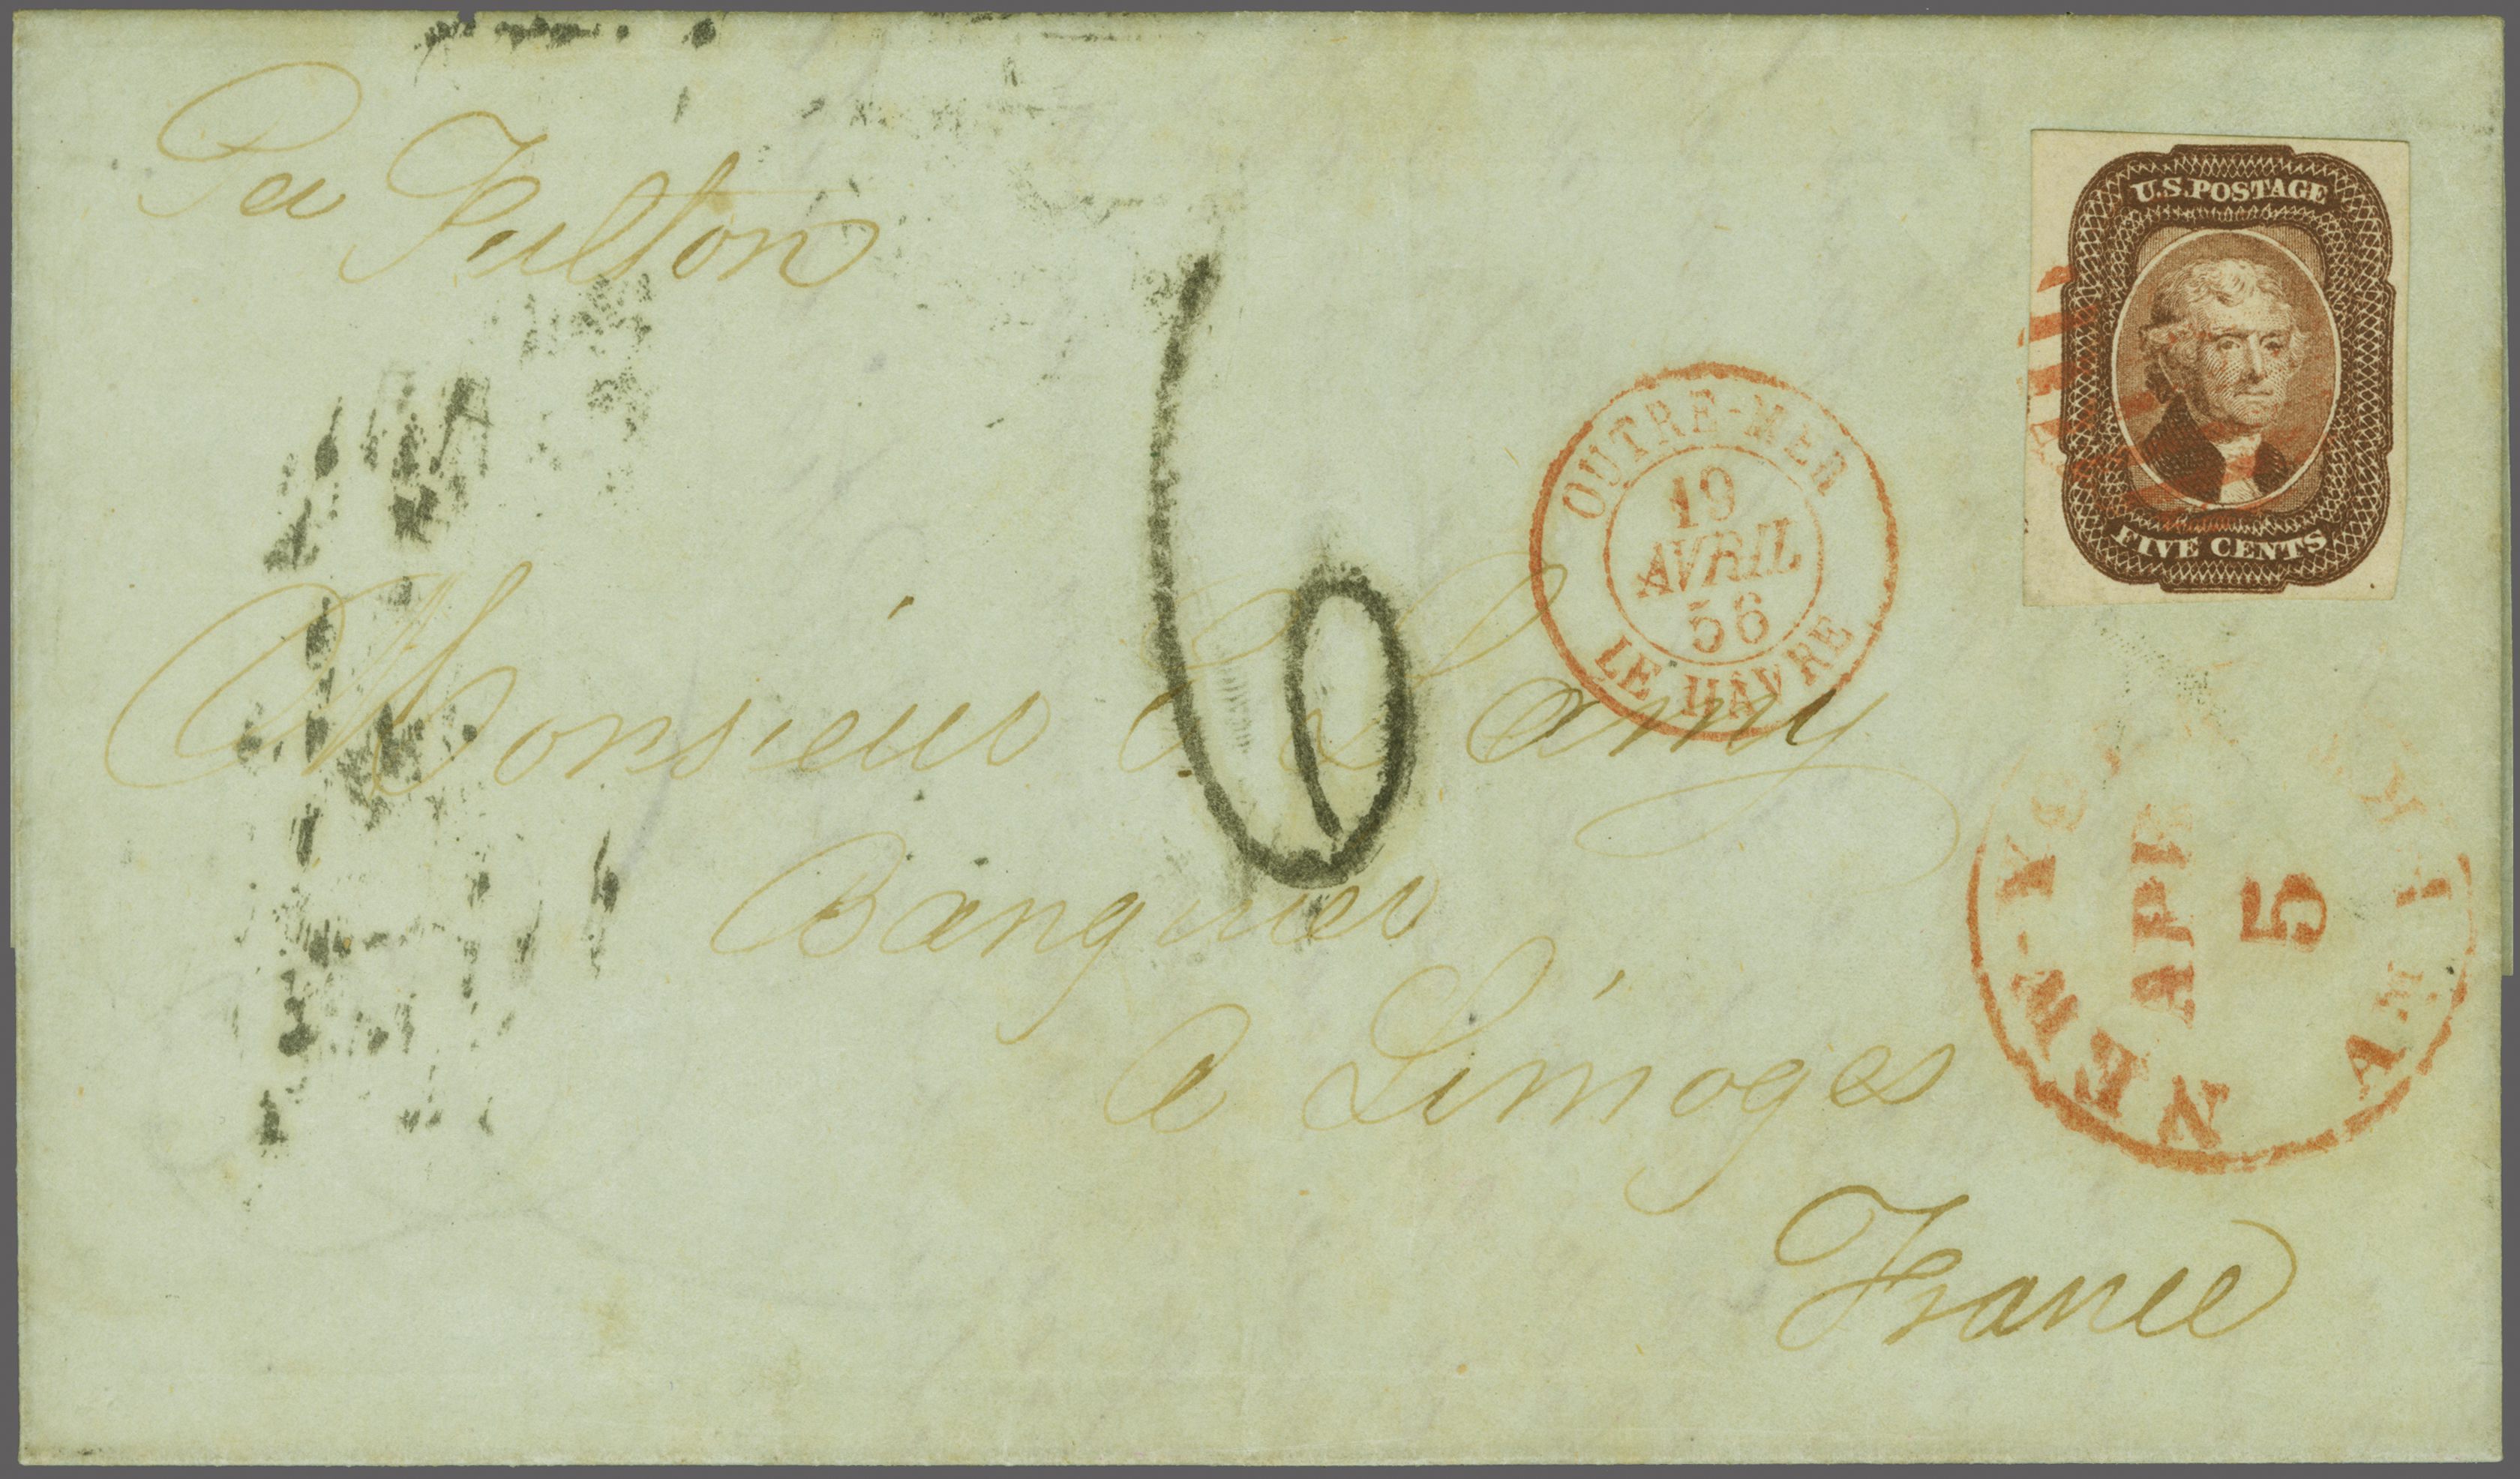 Per Fulton
U.S. POSTAGE
FIVE CENTS
6
OUTRE-MER
19
AVRIL
56
LE HAVRE
Monsieur Lamy
Banquier
a Limoges
France
NEW-YORK AM. PKT
APR
5